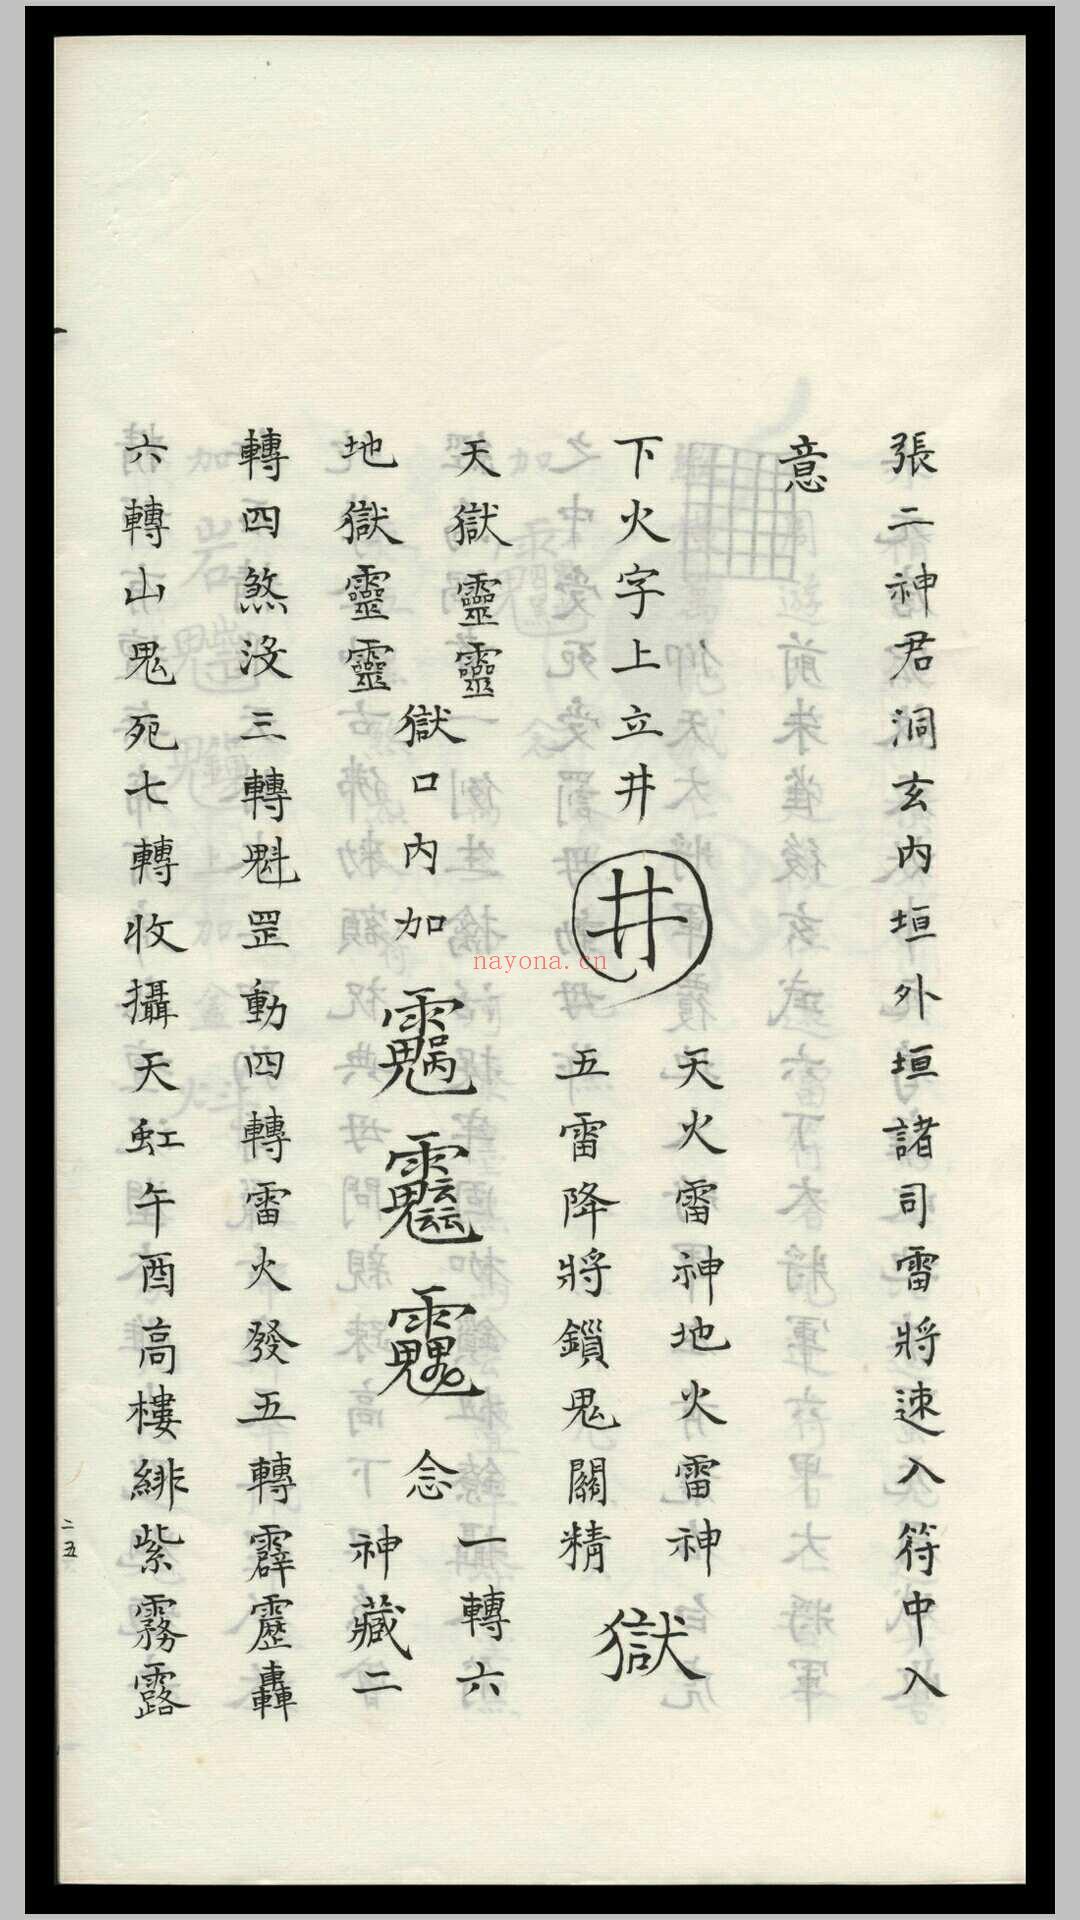 張二神君洞玄內垣外垣諸司雷將速入符中入
意
下火字上立井
井
天火雷神地火雷神
五雷降將鎖鬼關精
獄
天獄靈靈
地獄靈靈
獄口內加
念
一轉六
神藏二
轉四煞沒三轉魁罡動四轉雷火發五轉霹靂轟
六轉山鬼死七轉收攝天虹午酉高樓緋紫霧露
二五
nayona.cn